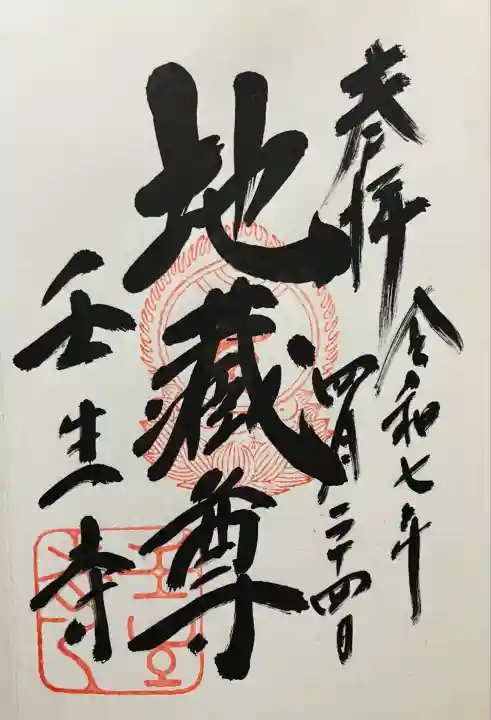 奉拝
令和七年
四月二十四日
地蔵尊
壬生寺